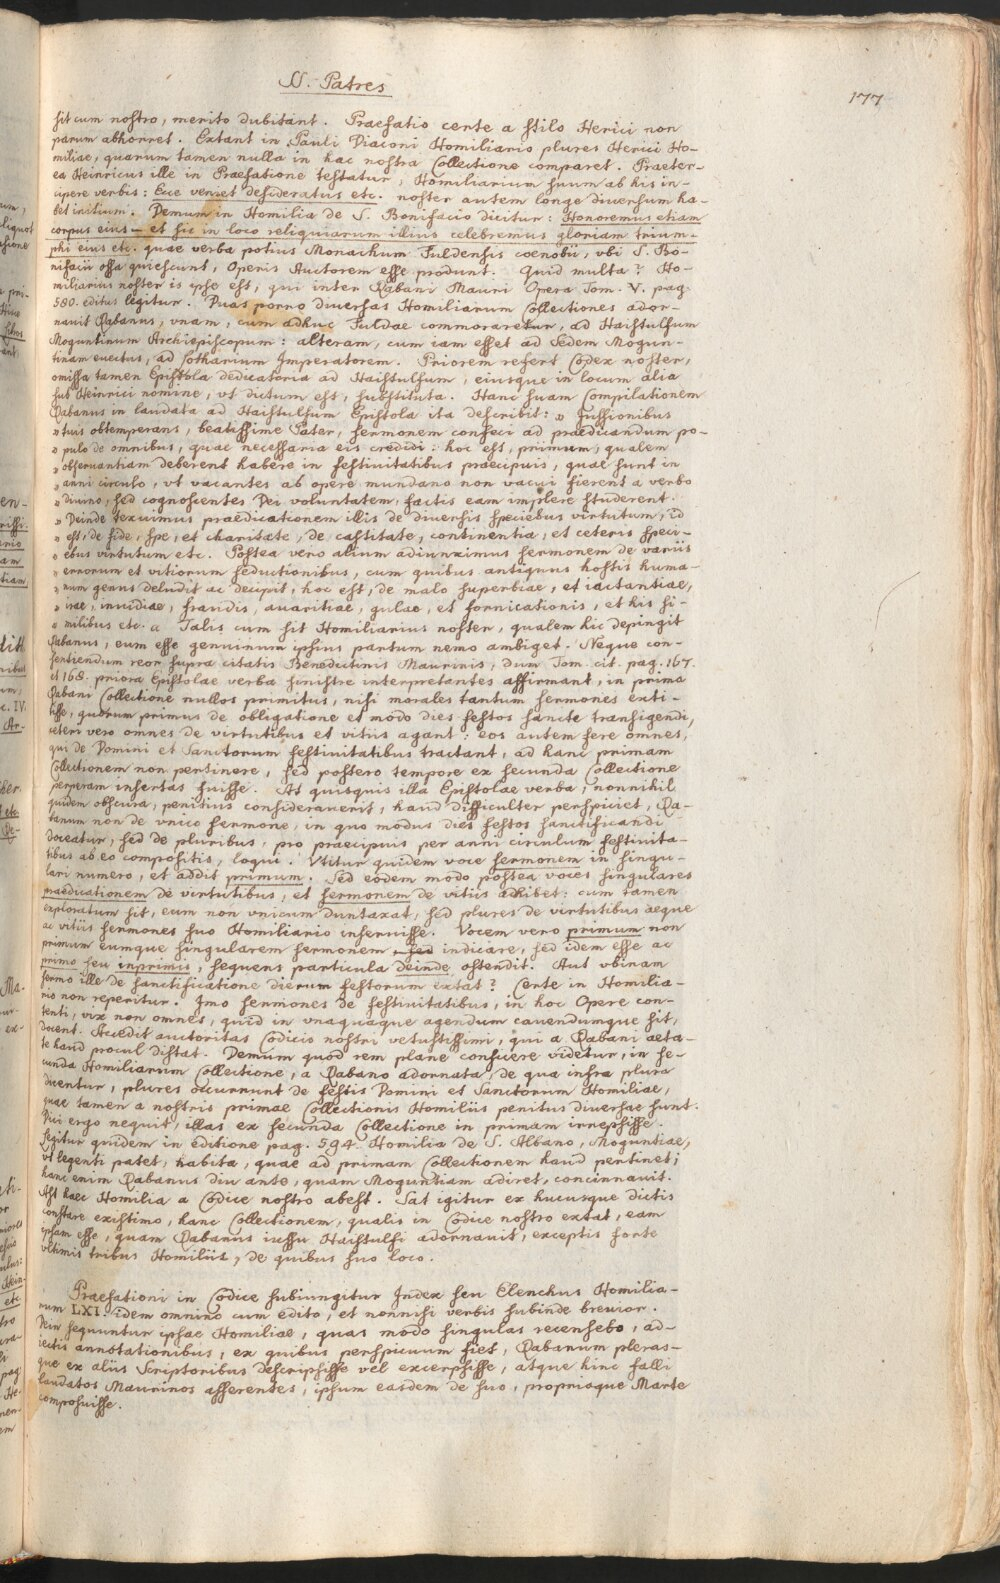 SS. Patres
177
sit cum nostro, merito dubitant. Praefatio certe a stilo Herici non
parum abhorret. Extant in Pauli Diaconi Homiliario plures Herici Ho-
miliae, quarum tamen nulla in hac nostra Collectione comparet. Praeter-
ea Heinricus ille in Praefatione testatur, Homiliarium suum ab his in-
cipere verbis: Ecce veniet desideratus etc. noster autem longe diversum ha-
bet initium. Demum in Homilia de S. Bonifacio dicitur: Honoremus etiam
corpus eius – et sic in loco reliquiarum illius celebremus gloriam trium-
phi eius etc. quae verba potius Monachum Fuldensis coenobii, vbi S. Bo-
nifacii ossa quiescunt, Operis Auctorem esse produnt. Quid multa? Ho-
miliarius noster is ipse est, qui inter Rabani Mauri Opera Tom. V. pag.
580. editus legitur. Duas porro diversas Homiliarum Collectiones ador-
navit Rabanus, vnam, cum adhuc Fuldae commoraretur, ad Haistulfum
Moguntinum Archiepiscopum: alteram, cum iam esset ad Sedem Mogun-
tinam evectus, ad Lotharium Imperatorem. Priorem refert Codex noster,
omissa tamen Epistola dedicatoria ad Haistulfum, eiusque in locum alia
sub Heinrici nomine, vt dictum est, substituta. Hanc suam Compilationem
Rabanus in laudata ad Haistulfum Epistola ita describit: » Iussionibus
» tuis obtemperans, beatissime Pater, sermonem confeci ad praedicandum po-
» pulo de omnibus, quae necessaria eis credidi: hoc est, primum, qualem
» observantiam deberent habere in festivitatibus praecipuis, quae sunt in
» anni circulo, vt vacantes ab opere mundano non vacui fierent a verbo
» divino, sed cognoscentes Dei voluntatem, factis eam implere studerent.
» Deinde texuimus praedicationem illis de diversis speciebus virtutum, id
» est, de fide, spe, et charitate, de castitate, continentia, et ceteris speci-
» ebus virtutum etc. Postea vero alium adiunximus sermonem de variis
» errorum et vitiorum seductionibus, cum quibus antiquus hostis huma-
» num genus deludit ac decipit, hoc est, de malo superbiae, et iactantiae,
» irae, invidiae, fraudis, avaritiae, gulae, et fornicationis, et his si-
» milibus etc. « Talis cum sit Homiliarius noster, qualem hic depingit
Rabanus, eum esse genuinum ipsius partum nemo ambiget. Neque con-
sentiendum reor supra citatis Benedictinis Maurinis, dum Tom. cit. pag. 167.
et 168. priora Epistolae verba sinistre interpretantes affirmant, in prima
Rabani Collectione nullos primitus, nisi morales tantum sermones exti-
tisse, quorum primus de obligatione et modo dies festos sancte transigendi,
ceteri vero omnes de virtutibus et vitiis agant: eos autem fere omnes,
qui de Domini et Sanctorum festivitatibus tractant, ad hanc primam
Collectionem non pertinere, sed postero tempore ex secunda Collectione
perperam insertas fuisse. At quisquis illa Epistolae verba, nonnihil
quidem obscura, penitius consideraverit, haud difficulter perspiciet, Ra-
banum non de vnico sermone, in quo modus dies festos sanctificandi
doceatur, sed de pluribus, pro praecipuis per anni circulum festivita-
tibus ab eo compositis, loqui. Vtitur quidem voce sermonem in singu-
lari numero, et addit primum. Sed eodem modo postea voces singulares
praedicationem de virtutibus, et sermonem de vitiis adhibet: cum tamen
exploratum sit, eum non vnicum duntaxat, sed plures de virtutibus aeque
ac vitiis sermones suo Homiliario inseruisse. Vocem vero primum non
primum eumque singularem sermonem indicare, sed idem esse ac
primo seu inprimis, sequens particula deinde ostendit. Aut vbinam
sermo ille de sanctificatione dierum festorum extat? Certe in Homilia-
rio non reperitur. Imo sermones de festivitatibus, in hoc Opere con-
tenti, vix non omnes, quid in vnaquaque agendum cavendumque sit,
docent. Accedit auctoritas Codicis nostri vetustissimi, qui a Rabani aeta-
te haud procul distat. Demum quod rem plane conficere videtur, in se-
cunda Homiliarum Collectione, a Rabano adornata, de qua infra plura
dicentur, plures occurrunt de festis Domini et Sanctorum Homiliae,
quae tamen a nostris primae Collectionis Homiliis penitus diversae sunt.
Dici ergo nequit, illas ex secunda Collectione in primam irrepsisse.
Legitur quidem in editione pag. 594. Homilia de S. Albano, Moguntiae,
vt legenti patet, habita, quae ad primam Collectionem haud pertinet;
hanc enim Rabanus diu ante, quam Moguntiam adiret, concinnavit.
Ast haec Homilia a Codice nostro abest. Sat igitur ex hucusque dictis
constare existimo, hanc Collectionem, qualis in Codice nostro extat, eam
ipsam esse, quam Rabanus iussu Haistulfi adornavit, exceptis forte
vltimis tribus Homiliis, de quibus suo loco.
Praefationi in Codice subiungitur Index seu Elenchus Homilia-
rum LXI. idem omnino cum edito, et nonnisi verbis subinde brevior.
Dein sequuntur ipsae Homiliae, quas modo singulas recensebo, ad-
iectis annotationibus, ex quibus perspicuum fiet, Rabanum pleras-
que ex aliis Scriptoribus descripsisse vel excerpsisse, atque hinc falli
laudatos Maurinos asserentes, ipsum easdem de suo, proprioque Marte
composuisse.